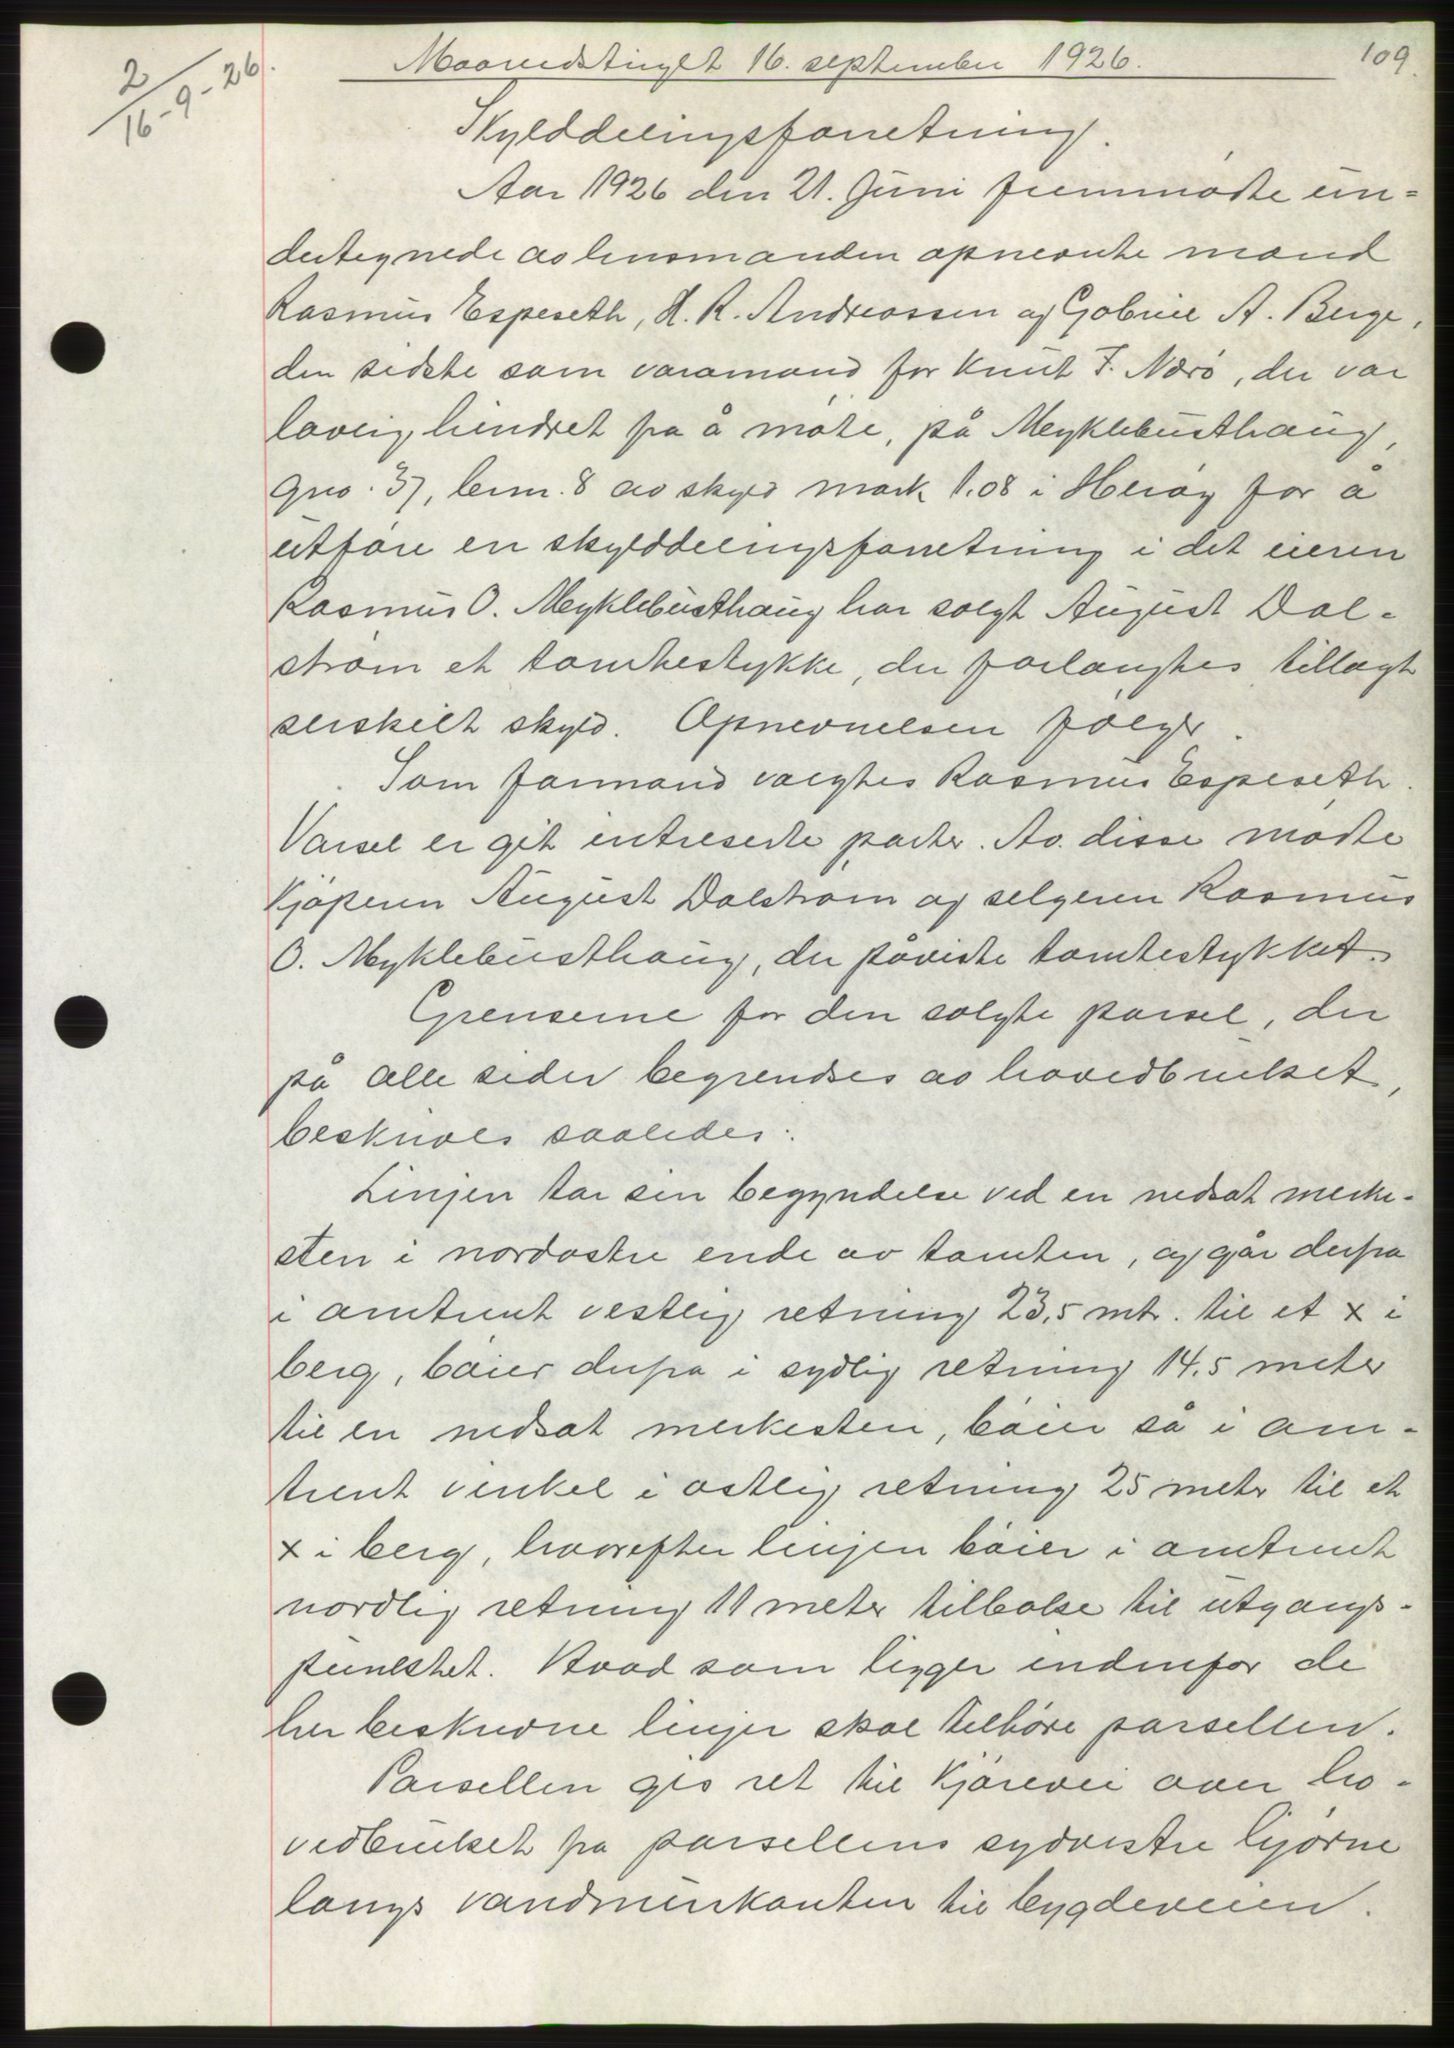 2/16-9-26.
Maanedstinget 16. september 1926.
109.
Skylddelingsforretning.
Aar 1926 den 21. Juni fremmødte un=
dertegnede av lensmanden opnevnte mænd
Rasmus Espeseth, H. R. Andreassen og Gabriel A. Berge,
den sidste som varamand for Knut F. Nærø, der var
lovlig hindret fra å møte, på Myklebusthaug,
gno. 37, brnr. 8 av skyld mark 1.08 i Herøy for å
utføre en skylddelingsforretning i det eieren
Rasmus O. Myklebusthaug har solgt August Dal-
strøm et tomtestykke, der forlangtes tillagt
serskilt skyld. Opnevnelsen følger.
Som formand valgtes Rasmus Espeseth.
Varsel er git intreserte parter. Av disse møtte
kjøperen August Dalstrøm og selgeren Rasmus
O. Myklebusthaug, der påviste tomtestykket.
Grenserne for den solgte parsel, der
på alle sider begrendses av hovedbruket,
beskrives saaledes:
Linjen tar sin begyndelse ved en nedsat merke-
sten i nordøstre ende av tomten, og går derfra
i omtrent vestlig retning 23,5 mtr. til et x i
berg, bøier derfra i sydlig retning 14.5 meter
til en nedsat merkesten, bøier så i om-
trent vinkel i østlig retning 25 meter til et
x i berg, hvorefter linjen bøier i omtrent
nordlig retning 11 meter tilbake til utgangs-
punktet. Hvad som ligger indenfor de
her beskrevne linjer skal tilhøre parsellen.
Parsellen gis ret til kjørevei over ho-
vedbruket fra parsellens sydvestre hjørne
langs vandmurkanten til bygdeveien.